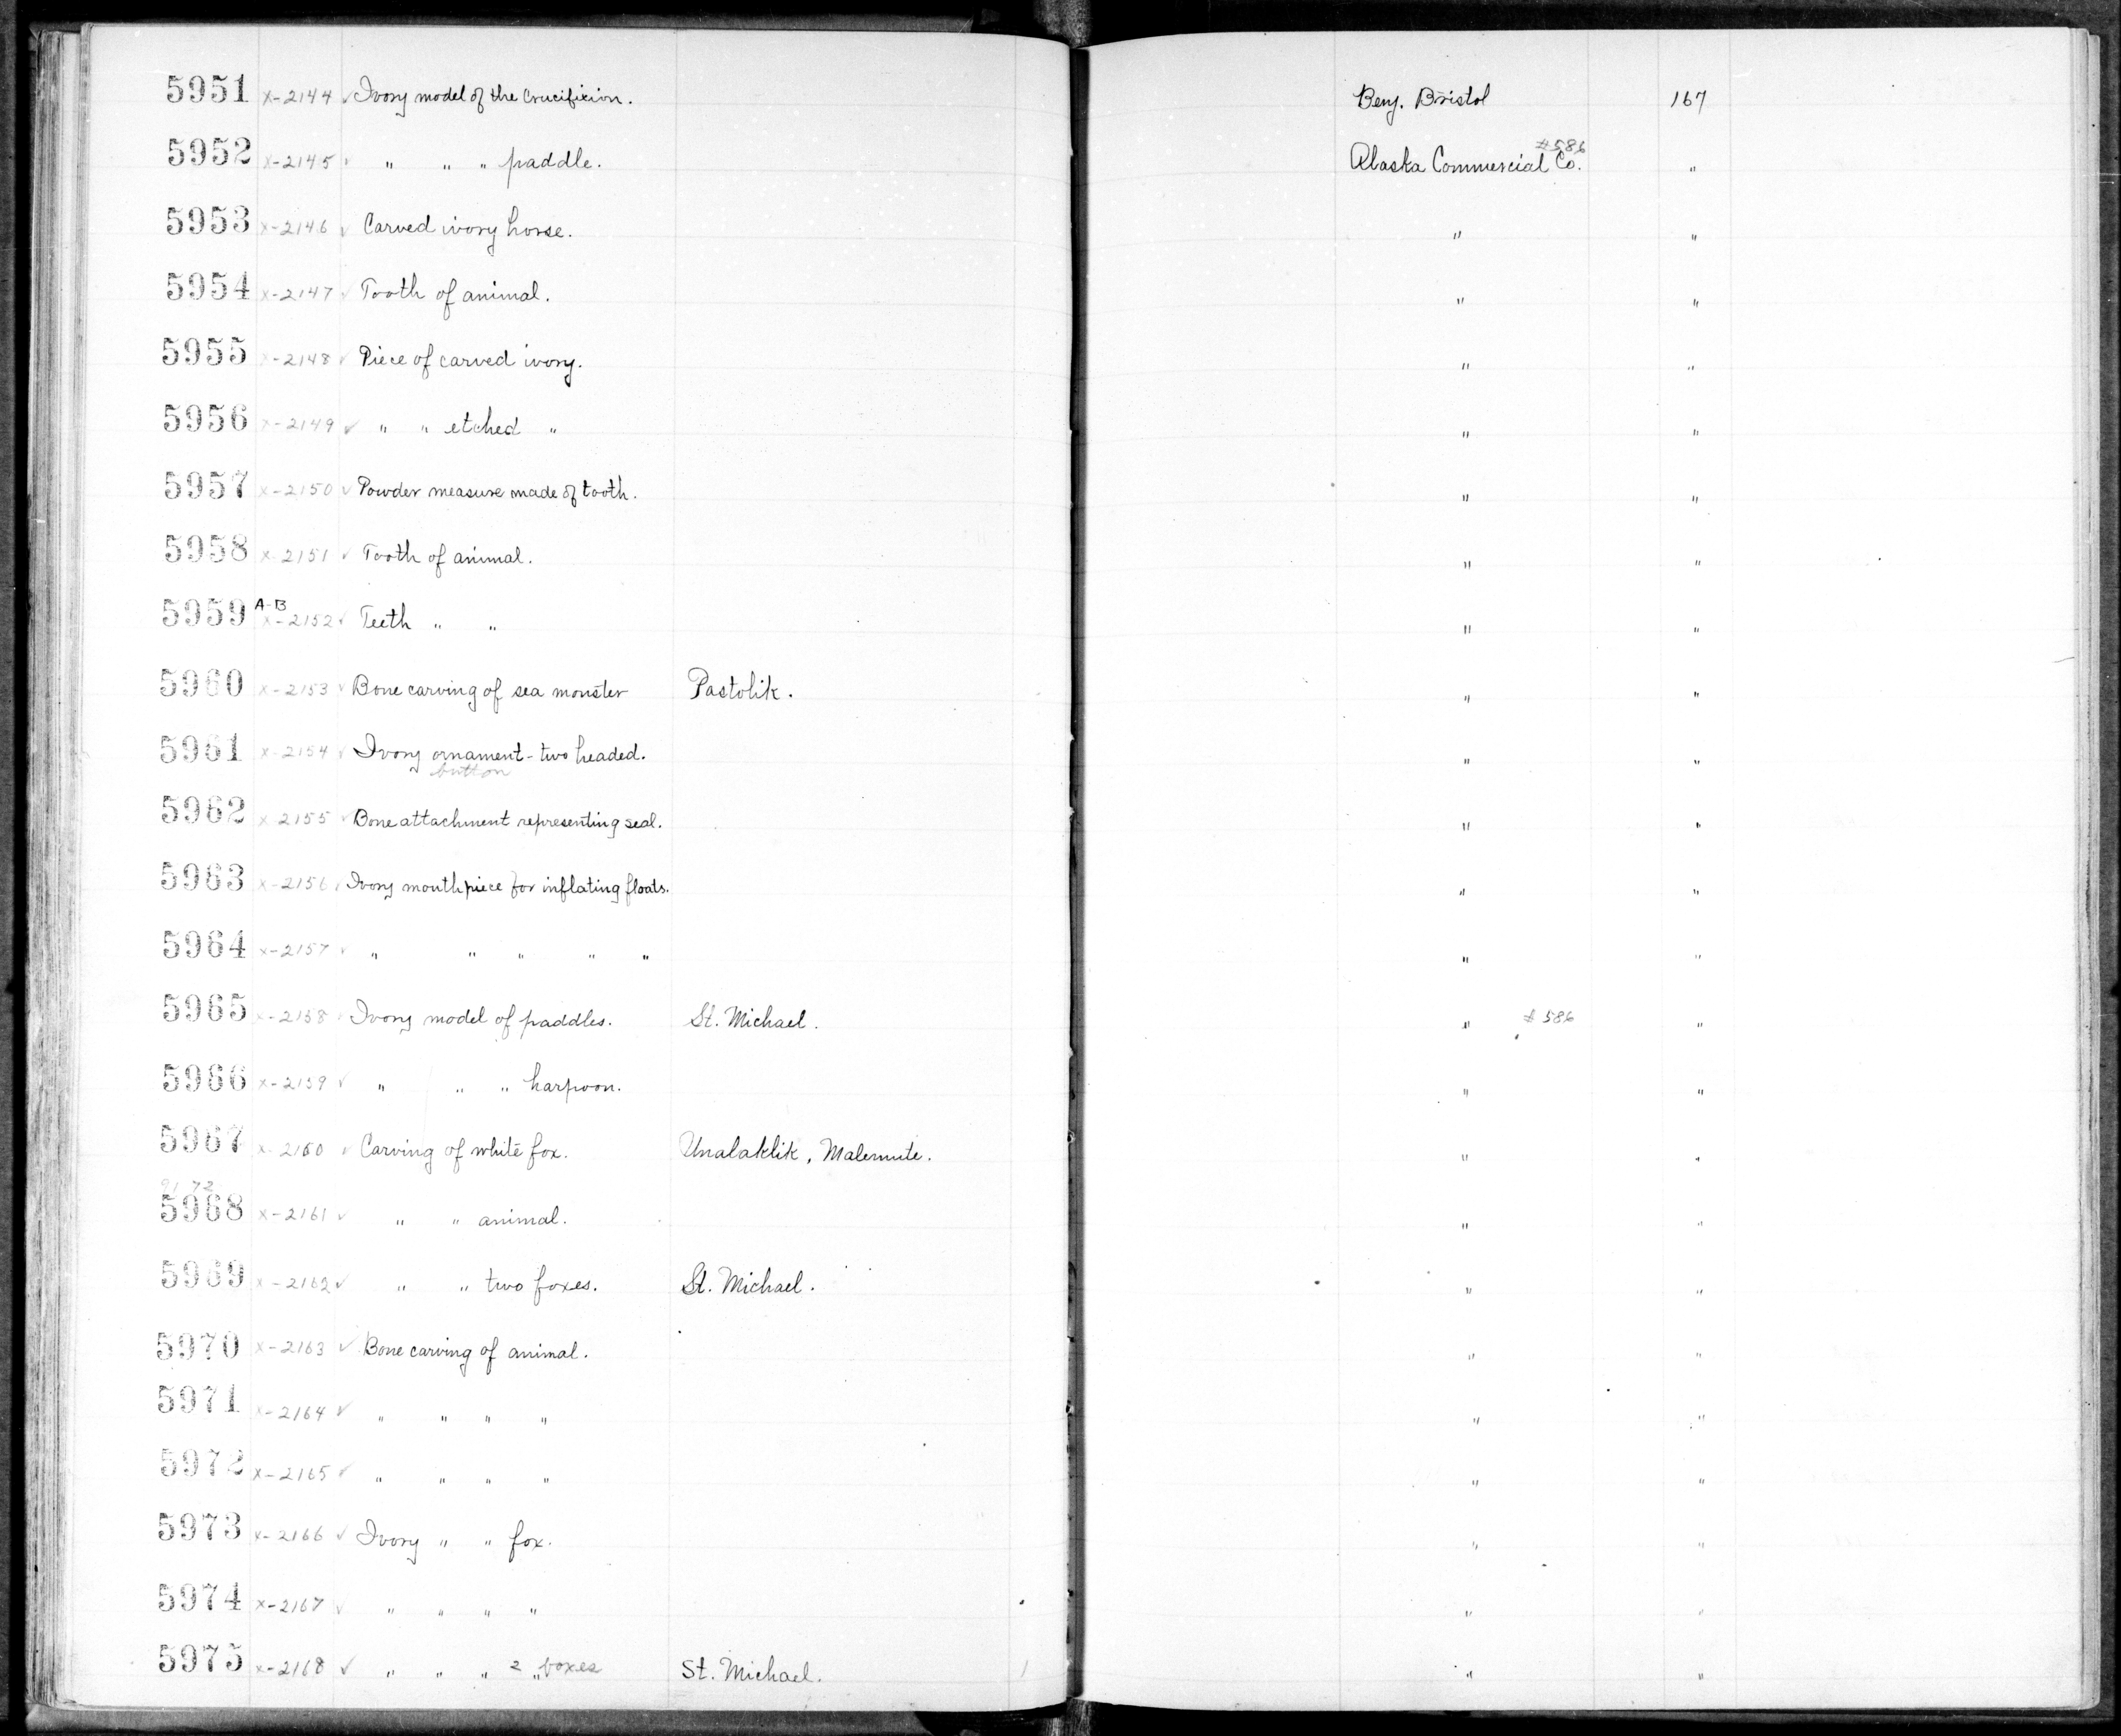 5951 x-2144 ✓ Ivory model of the Crucifixion. Benj. Bristol 167
5952 x-2145 ✓ " " " paddle. Alaska Commercial Co. #586 "
5953 x-2146 ✓ Carved ivory horse. " "
5954 x-2147 ✓ Tooth of animal. " "
5955 x-2148 ✓ Piece of carved ivory. " "
5956 x-2149 ✓ " " etched " " "
5957 x-2150 ✓ Powder measure made of tooth. " "
5958 x-2151 ✓ Tooth of animal. " "
5959 A-B x-2152 ✓ Teeth " " " "
5960 x-2153 ✓ Bone carving of sea monster Pastolik. " "
5961 x-2154 ✓ Ivory ornament - two headed. " "
button
5962 x-2155 ✓ Bone attachment representing seal. " "
5963 x-2156 ✓ Ivory mouthpiece for inflating floats. " "
5964 x-2157 ✓ " " " " " " "
5965 x-2158 ✓ Ivory model of paddles. St. Michael. " #586 "
5966 x-2159 ✓ " " " harpoon. " "
5967 x-2160 ✓ Carving of white fox. Unalaklik, Malemute. " "
5968 x-2161 ✓ " " animal. " "
5969 x-2162 ✓ " " two foxes. St. Michael. " "
5970 x-2163 ✓ Bone carving of animal. " "
5971 x-2164 ✓ " " " " " "
5972 x-2165 ✓ " " " " " "
5973 x-2166 ✓ Ivory " " fox. " "
5974 x-2167 ✓ " " " " " "
5975 x-2168 ✓ " " " 2 " foxes St. Michael. " "